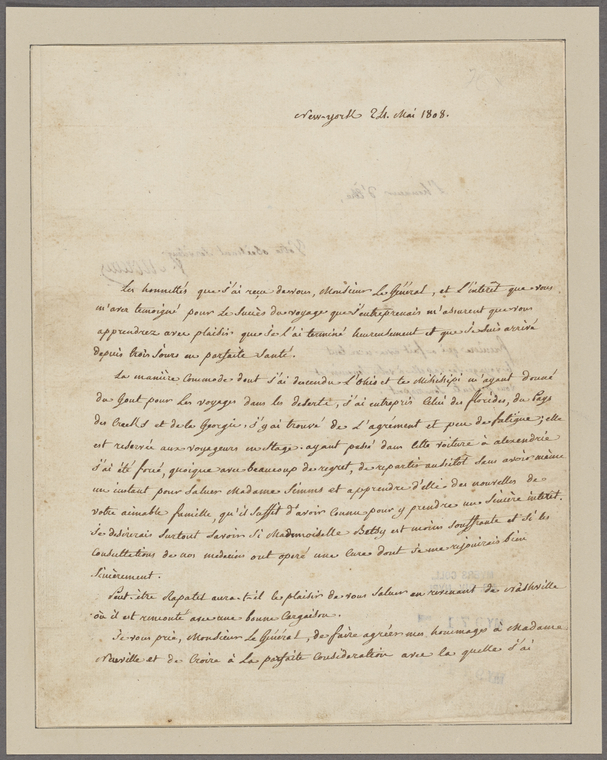 New-york 24. Mai 1808.
Les honnettés que j'ai reçu de vous, Monsieur Le Général, et L'interet que vous
m'avez temoigné pour Le Succès du voyage que j'entreprenais m'assurent que vous
apprendrez avec plaisir que Je L'ai terminé heureusement et que Je suis arrivé
depuis trois Jours en parfaite Santé.
La manière Commode dont J'ai descendu L'Ohio et le Missisipi m'ayant donné
du Gout pour Les voyages dans les deserts, J'ai entrepris Celui des florides, du Pays
des Creeks et de la Georgie. J'y ai trouvé de L'agrément et peu de fatigue; elle
est reservée aux voyageurs en Stage. ayant passé dans cette voiture à alexandrie
J'ai été forcé, quoique avec beaucoup de regret, de repartir aussitot Sans avoir même
un instant pour Saluer Madame Simms et apprendre d'elle des nouvelles de
votre aimable famille, qu'il Suffit d'avoir Connu pour y prendre un Sincère interet.
Je desirerais Surtout Savoir Si Mademoiselle Betsy est moins Souffrante et Si les
Consultations de nos medecins ont operé une Cure dont Je me rejouirais bien
Sincèrement.
Peut être Rapalet aura-t-il le plaisir de vous Saluer en revenant de Nashville
où il est remonté avec une bonne Cargaison.
Je vous prie, Monsieur Le Général, de faire agréer mes hommages à Madame
et de Croire à La parfaite Consideration avec la quelle J'ai